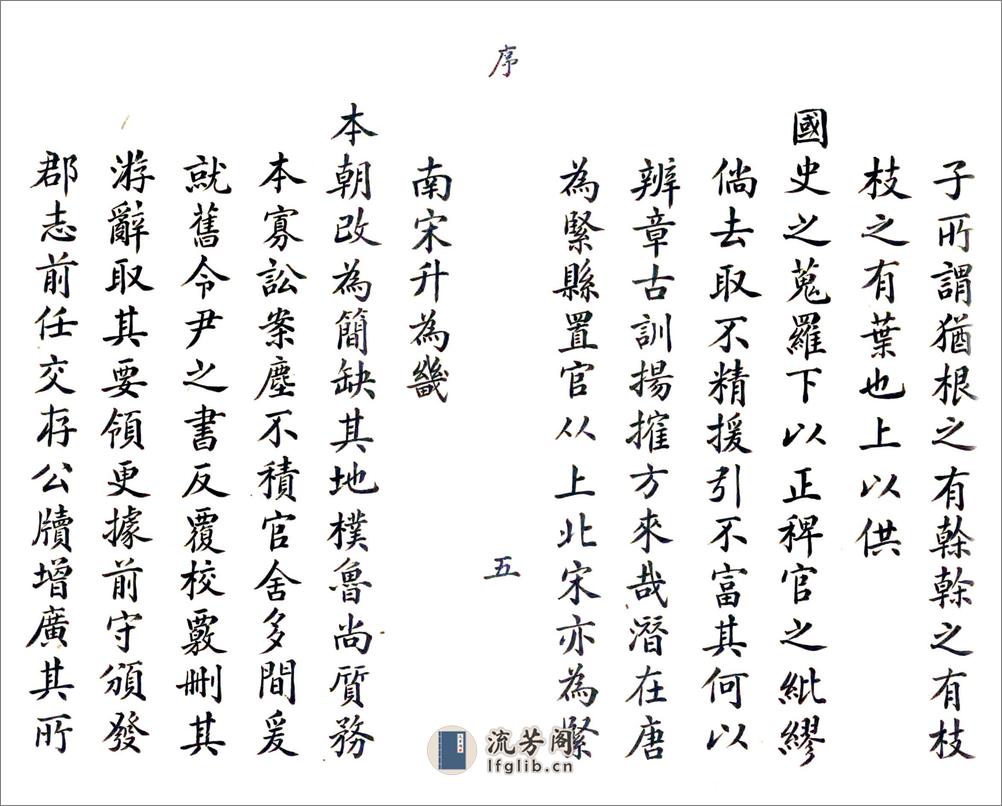 子所謂猶根之有榦榦之有枝
枝之有葉也上以供
國史之蒐羅下以正稗官之紕繆
倘去取不精援引不富其何以
辨章古訓揚搉方來哉潛在唐
為緊縣置官從上北宋亦為緊
序
五
南宋升為畿
本朝改為簡缺其地樸魯尚質務
本寡訟案塵不積官舍多間爰
就舊令尹之書反覆校覈刪其
游辭取其要領更據前守頒發
郡志前任交存公牘增廣其所
流芳阁
lfglib.cn